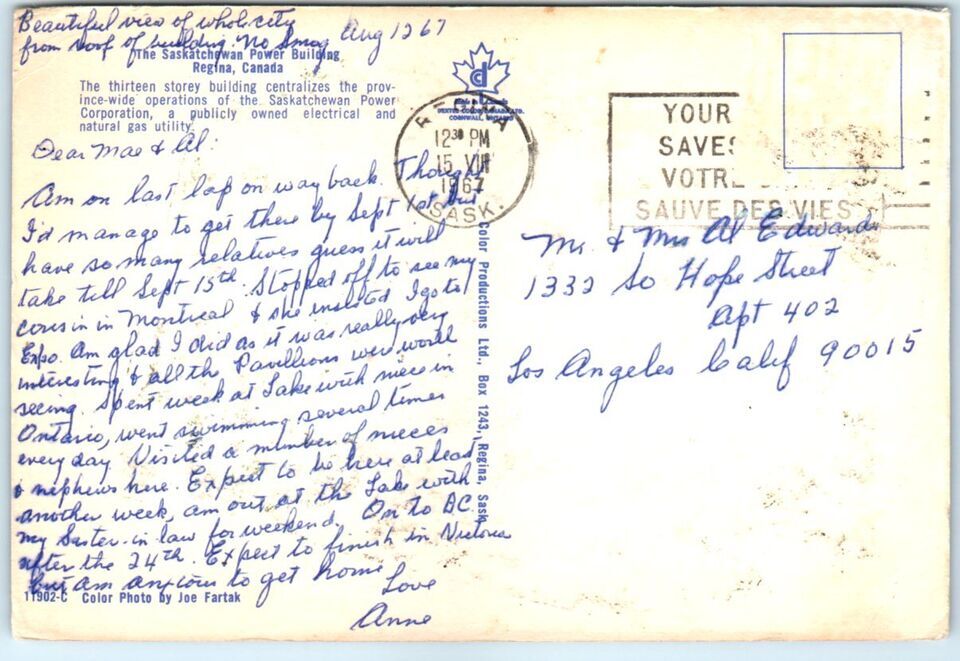 Beautiful view of whole city
from roof of building. No Smog
Aug 12 67
The Saskatchewan Power Building
Regina, Canada
The thirteen storey building centralizes the prov-
ince-wide operations of the Saskatchewan Power
Corporation, a publicly owned electrical and
natural gas utility.
Dear Mae & Al:
Am on last lap on way back. Thought
I'd manage to get there by Sept 1st but
have so many relatives guess it will
take till Sept 15th. Stopped off to see my
cousin in Montreal & she insisted I go to
Expo. Am glad I did as it was really very
interesting & all the Pavillions were worth
seeing. Spent week at Lake with niece in
Ontario, went swimming several times
every day. Visited a number of nieces
& nephews here. Expect to be here at least
another week, am out at the Lake with
my Sister-in law for weekend. On to BC
after the 24th. Expect to finish in Victoria
but am anxious to get home
Love
Anne
11902-C Color Photo by Joe Fartak
Color Productions Ltd., Box 1243, Regina, Sask.
dc
CORNWALL, ONTARIO
REGINA
12 30 PM
15 VIII
1967
SASK.
YOUR
SAVES
VOTRE
SAUVE DES VIES
Mr. & Mrs Al Edwards
1332 So Hope Street
Apt 402
Los Angeles Calif 90015